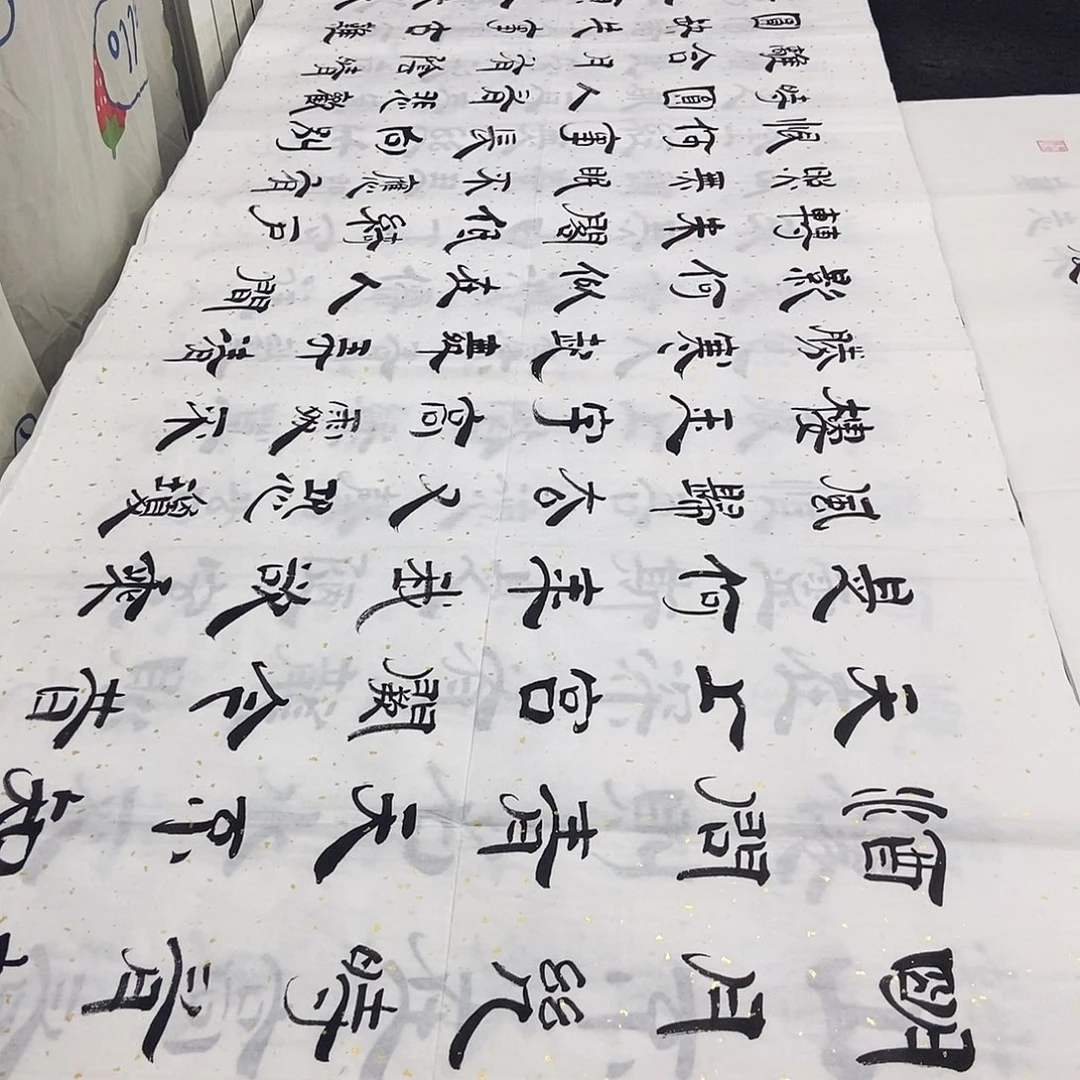 明月幾時有
酒問青天不知
天上宮闕今昔
是何年我欲乘
風歸去又恐瓊
樓玉宇高處不
勝寒起舞弄清
影何似在人間
轉朱閣低綺戶
照無眠不應有
恨何事長向別
時圓人有悲歡
離合月有陰晴
圓缺此事古難